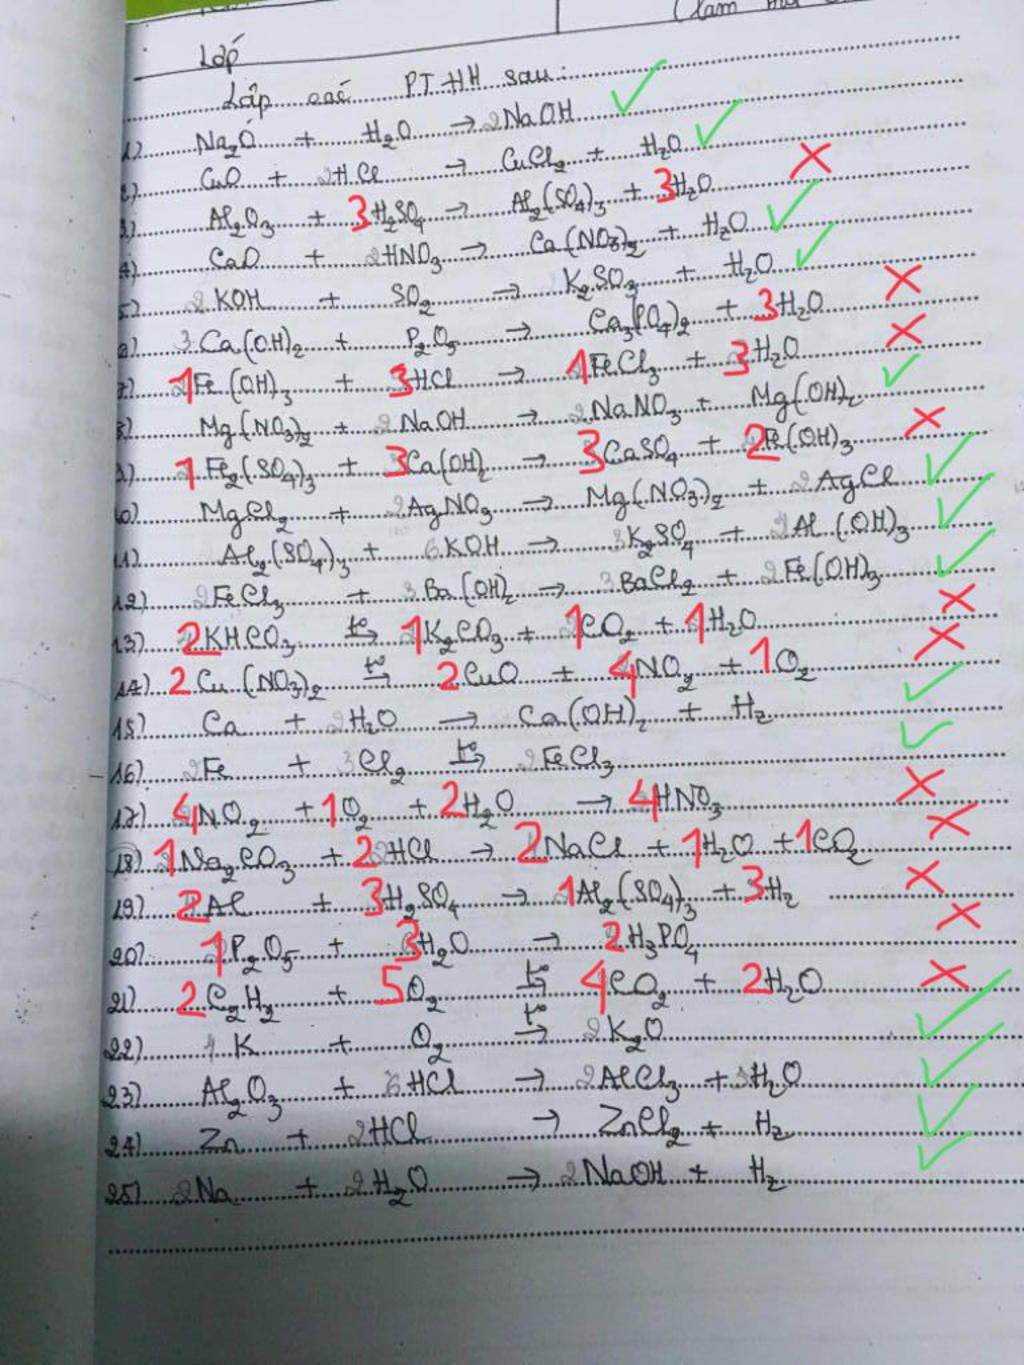 (làm
Lớp
Lập các PTHH sau:
1) Na2O + H2O → 2NaOH
2) CuO + 2HCl → CuCl2 + H2O
3) Al2O3 + 3H2SO4 → Al2(SO4)3 + 3H2O
4) CaO + 2HNO3 → Ca(NO3)2 + H2O
5) 2KOH + SO2 → K2SO3 + H2O
6) 3Ca(OH)2 + P2O5 → Ca3(PO4)2 + 3H2O
7) 1Fe(OH)3 + 3HCl → 1FeCl3 + 3H2O
8) Mg(NO3)2 + 2NaOH → 2NaNO3 + Mg(OH)2
9) 1Fe2(SO4)3 + 3Ca(OH)2 → 3CaSO4 + 2Fe(OH)3
10) MgCl2 + 2AgNO3 → Mg(NO3)2 + 2AgCl
11) Al2(SO4)3 + 6KOH → 3K2SO4 + 2Al(OH)3
12) 2FeCl3 + 3Ba(OH)2 → 3BaCl2 + 2Fe(OH)3
13) 2KHCO3 t°→ 1K2CO3 + 1CO2 + 1H2O
14) 2Cu(NO3)2 t°→ 2CuO + 4NO2 + 1O2
15) Ca + 2H2O → Ca(OH)2 + H2
16) 2Fe + 3Cl2 t°→ 2FeCl3
17) 4NO2 + 1O2 + 2H2O → 4HNO3
18) 1Na2CO3 + 2HCl → 2NaCl + 1H2O + 1CO2
19) 2Al + 3H2SO4 → 1Al2(SO4)3 + 3H2
20) 1P2O5 + 3H2O → 2H3PO4
21) 2C2H2 + 5O2 t°→ 4CO2 + 2H2O
22) 4K + O2 t°→ 2K2O
23) Al2O3 + 6HCl → 2AlCl3 + 3H2O
24) Zn + 2HCl → ZnCl2 + H2
25) 2Na + 2H2O → 2NaOH + H2